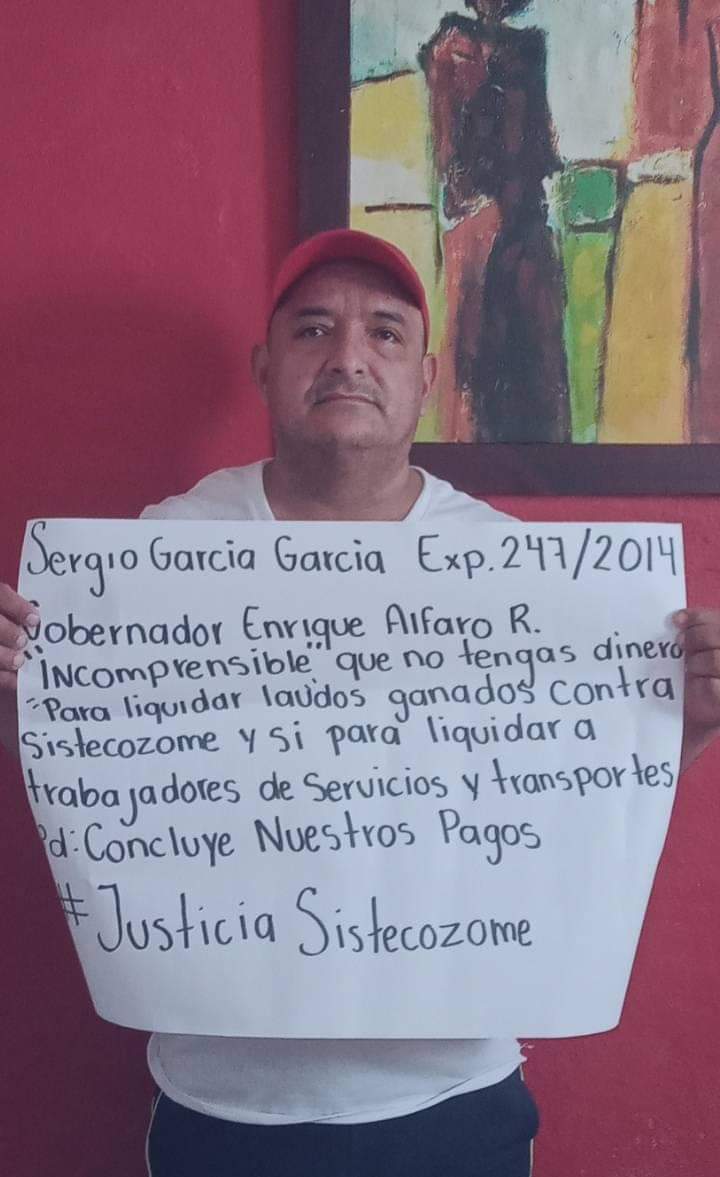 Sergio Garcia Garcia Exp. 247/2014
Gobernador Enrique Alfaro R.
"INcomprensible" que no tengas dinero
"Para liquidar laudos ganados contra
Sistecozome y si para liquidar a
trabajadores de Servicios y transportes
Pd: Concluye Nuestros Pagos
#Justicia Sistecozome